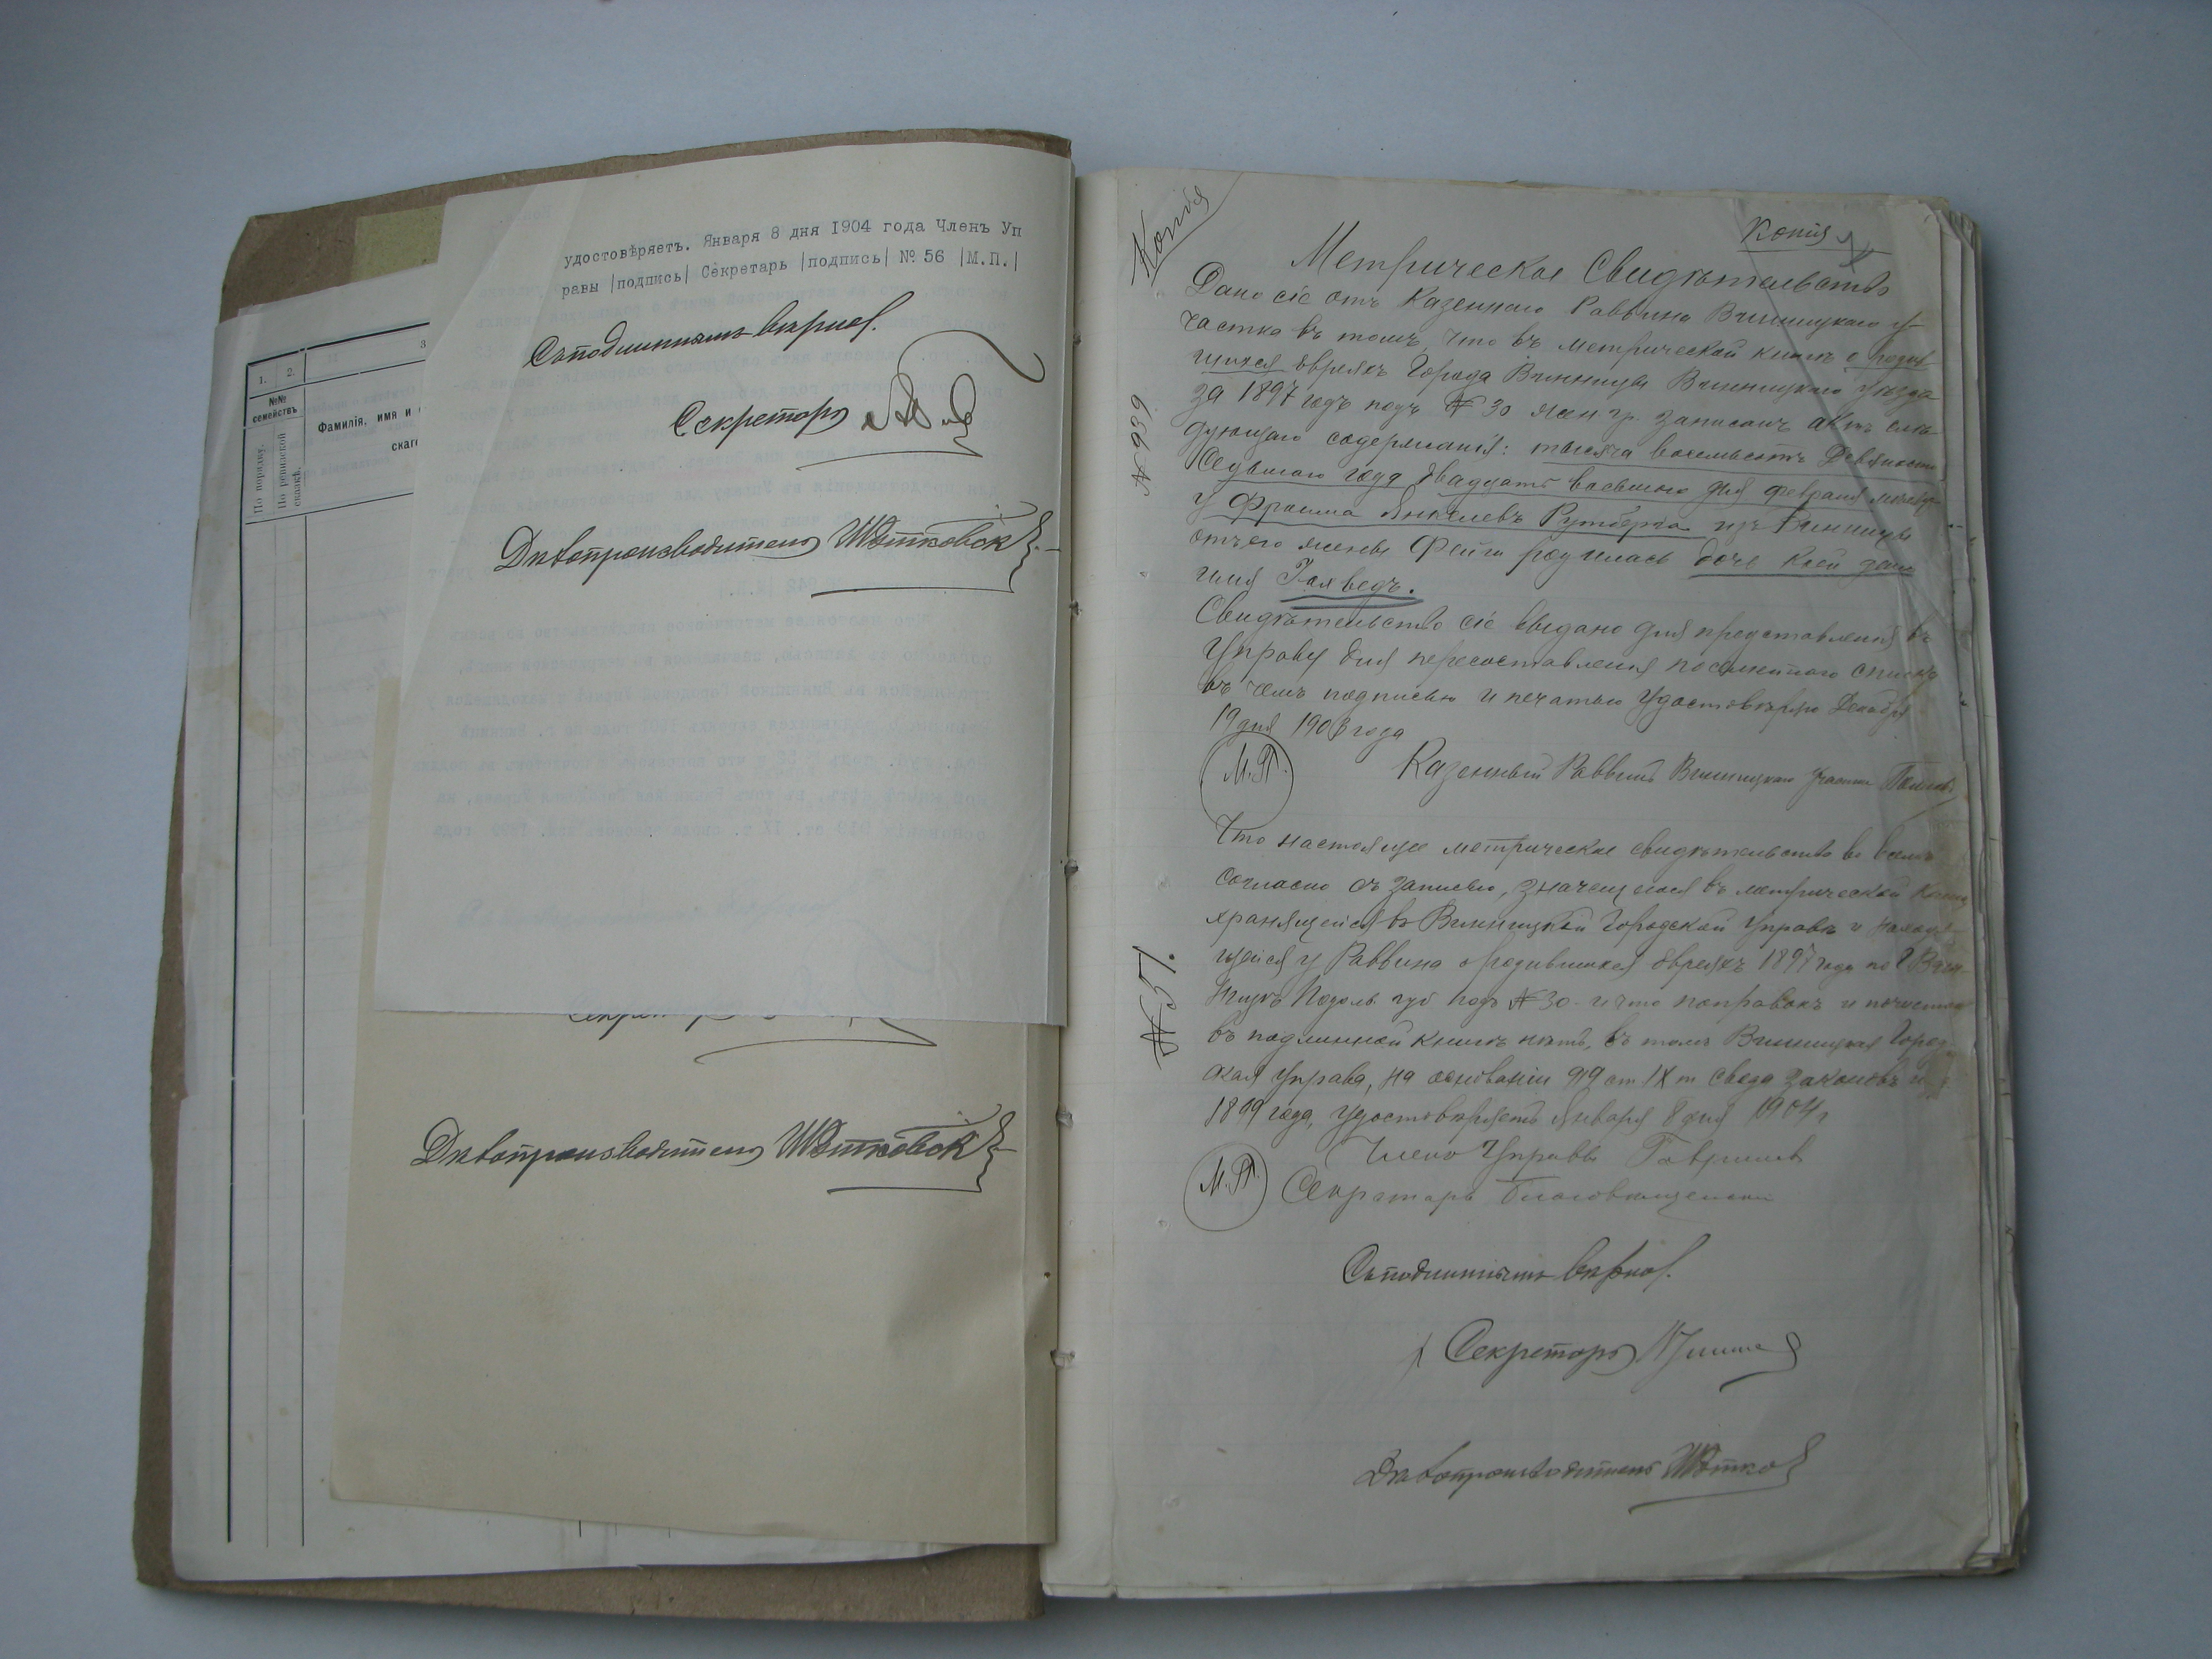 1. 2. 3
№№ семействъ
Фамилія, имя и
скаг
По порядку.
По ревизской сказкѣ.
удостовѣряетъ. Января 8 дня 1904 года Членъ Уп
равы |подпись| Секретарь |подпись| № 56 |М.П.|
Съ подлиннымъ вѣрно.
Секретарь
Дѣлопроизводитель
Дѣлопроизводитель
Копія
Копія
№ 939
№ 57.
Метрическое Свидѣтельство
Дано сіе отъ Казеннаго Раввина Винницкаго у-
частка въ томъ, что въ метрической книгѣ о родив
шихся евреяхъ города Винницы Винницкаго уѣзда
за 1897 годъ подъ № 30 жен. гр. записанъ актъ слѣ-
дующаго содержанія: тысяча восемьсотъ девяносто
седьмого года двадцать восьмого дня февраля мѣсяца
у Фроима Янкелевъ Рутберга изъ Винницы
отъ его жены Фейги родилась дочь коей дано
имя Голведъ.
Свидѣтельство сіе выдано для представленія въ
Управу для пересоставленія посемейнаго списка
въ чемъ подписью и печатью удостовѣряю Декабря
19 дня 1903 года
М.П. Казенный Раввинъ Винницкаго участка
Что настоящее метрическое свидѣтельство во всемъ
согласно съ записью, значащейся въ метрической книгѣ
хранящейся въ Винницкой Городской Управѣ и находя-
щейся у Раввина о родившихся евреяхъ 1897 года по г. Вин-
ницѣ Подоль. губ подъ № 30 и что поправокъ и почистокъ
въ подлинной книгѣ нѣтъ, въ томъ Винницкая Город-
ская Управа, на основаніи 919 ст. IX т. Свода законовъ изд
1899 года, удостовѣряетъ Января 8 дня 1904 г
Членъ Управы Гавришевъ
М.П. Секретарь Благовѣщенскій
Съ подлиннымъ вѣрно.
Секретарь
Дѣлопроизводитель